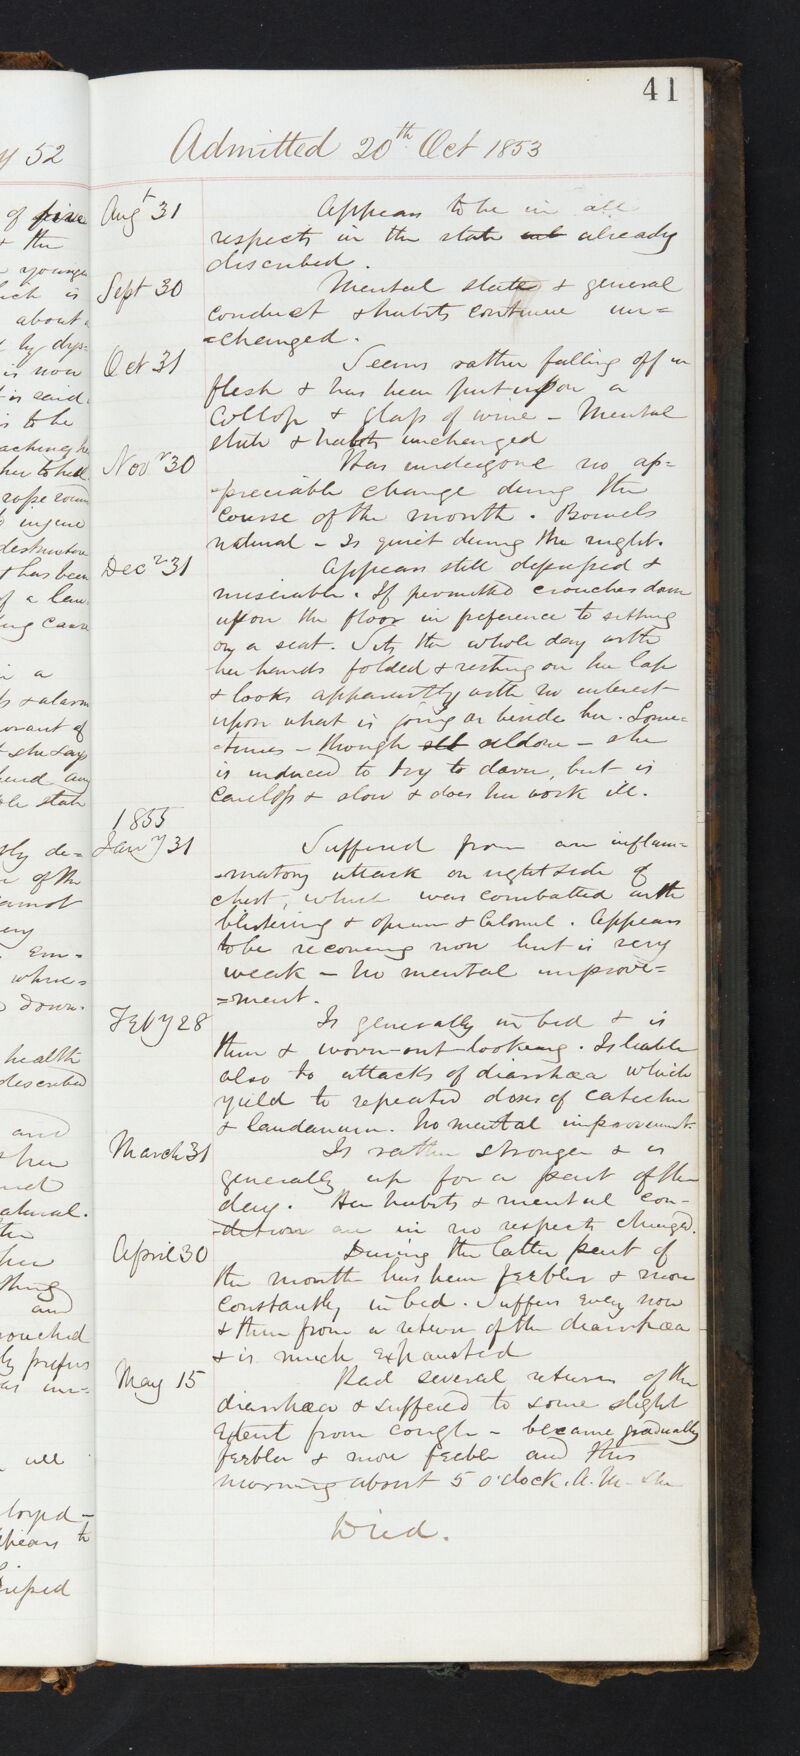 41
Admitted 20th Oct 1853
Augt 31 Appears to be in all
respects in the state already
described.
Sept 30 Mental state & general
conduct & habits continue un=
=changed.
Oct 31 Seems rather falling off in
flesh & has been put upon a
Collop & glass of wine – Mental
state & habits unchanged
Novr 30 Has undergone no ap=
=preciable change during the
course of the month. Bowels
natural – Is quiet during the night.
Decr 31 Appears still depressed &
miserable. If permitted crouches down
upon the floor in preference to sitting
on a seat. Sits the whole day with
her hands folded & resting on her lap
& looks apparently with no interest
upon what is going on beside her. Some=
=times – though seldom – she
is induced to try to darn, but is
careless & slow & does her work ill.
1855
Jany 31 Suffered from an inflam=
=matory attack on right side of
chest, which was combatted with
blistering & opium & Calomel. Appears
to be recovering now but is very
weak – No mental improve=
=ment.
Feby 28 Is generally in bed & is
thin & worn-out-looking. Is liable
also to attacks of diarrhœa which
yield to repeated doses of catechu
& laudanum. No mental improvement.
March 31 Is rather stronger & is
generally up for a part of the
day. Her habits & mental con-
-dition are in no respects changed.
April 30 During the latter part of
the month has been feebler & more
constantly in bed. Suffers every now
& then from a return of the diarrhœa
& is much exhausted
May 15 Had several returns of the
diarrhœa & suffered to some slight
extent from cough – became gradually
feebler & more feeble and this
morning about 5 o'clock. A.M. she
Died.